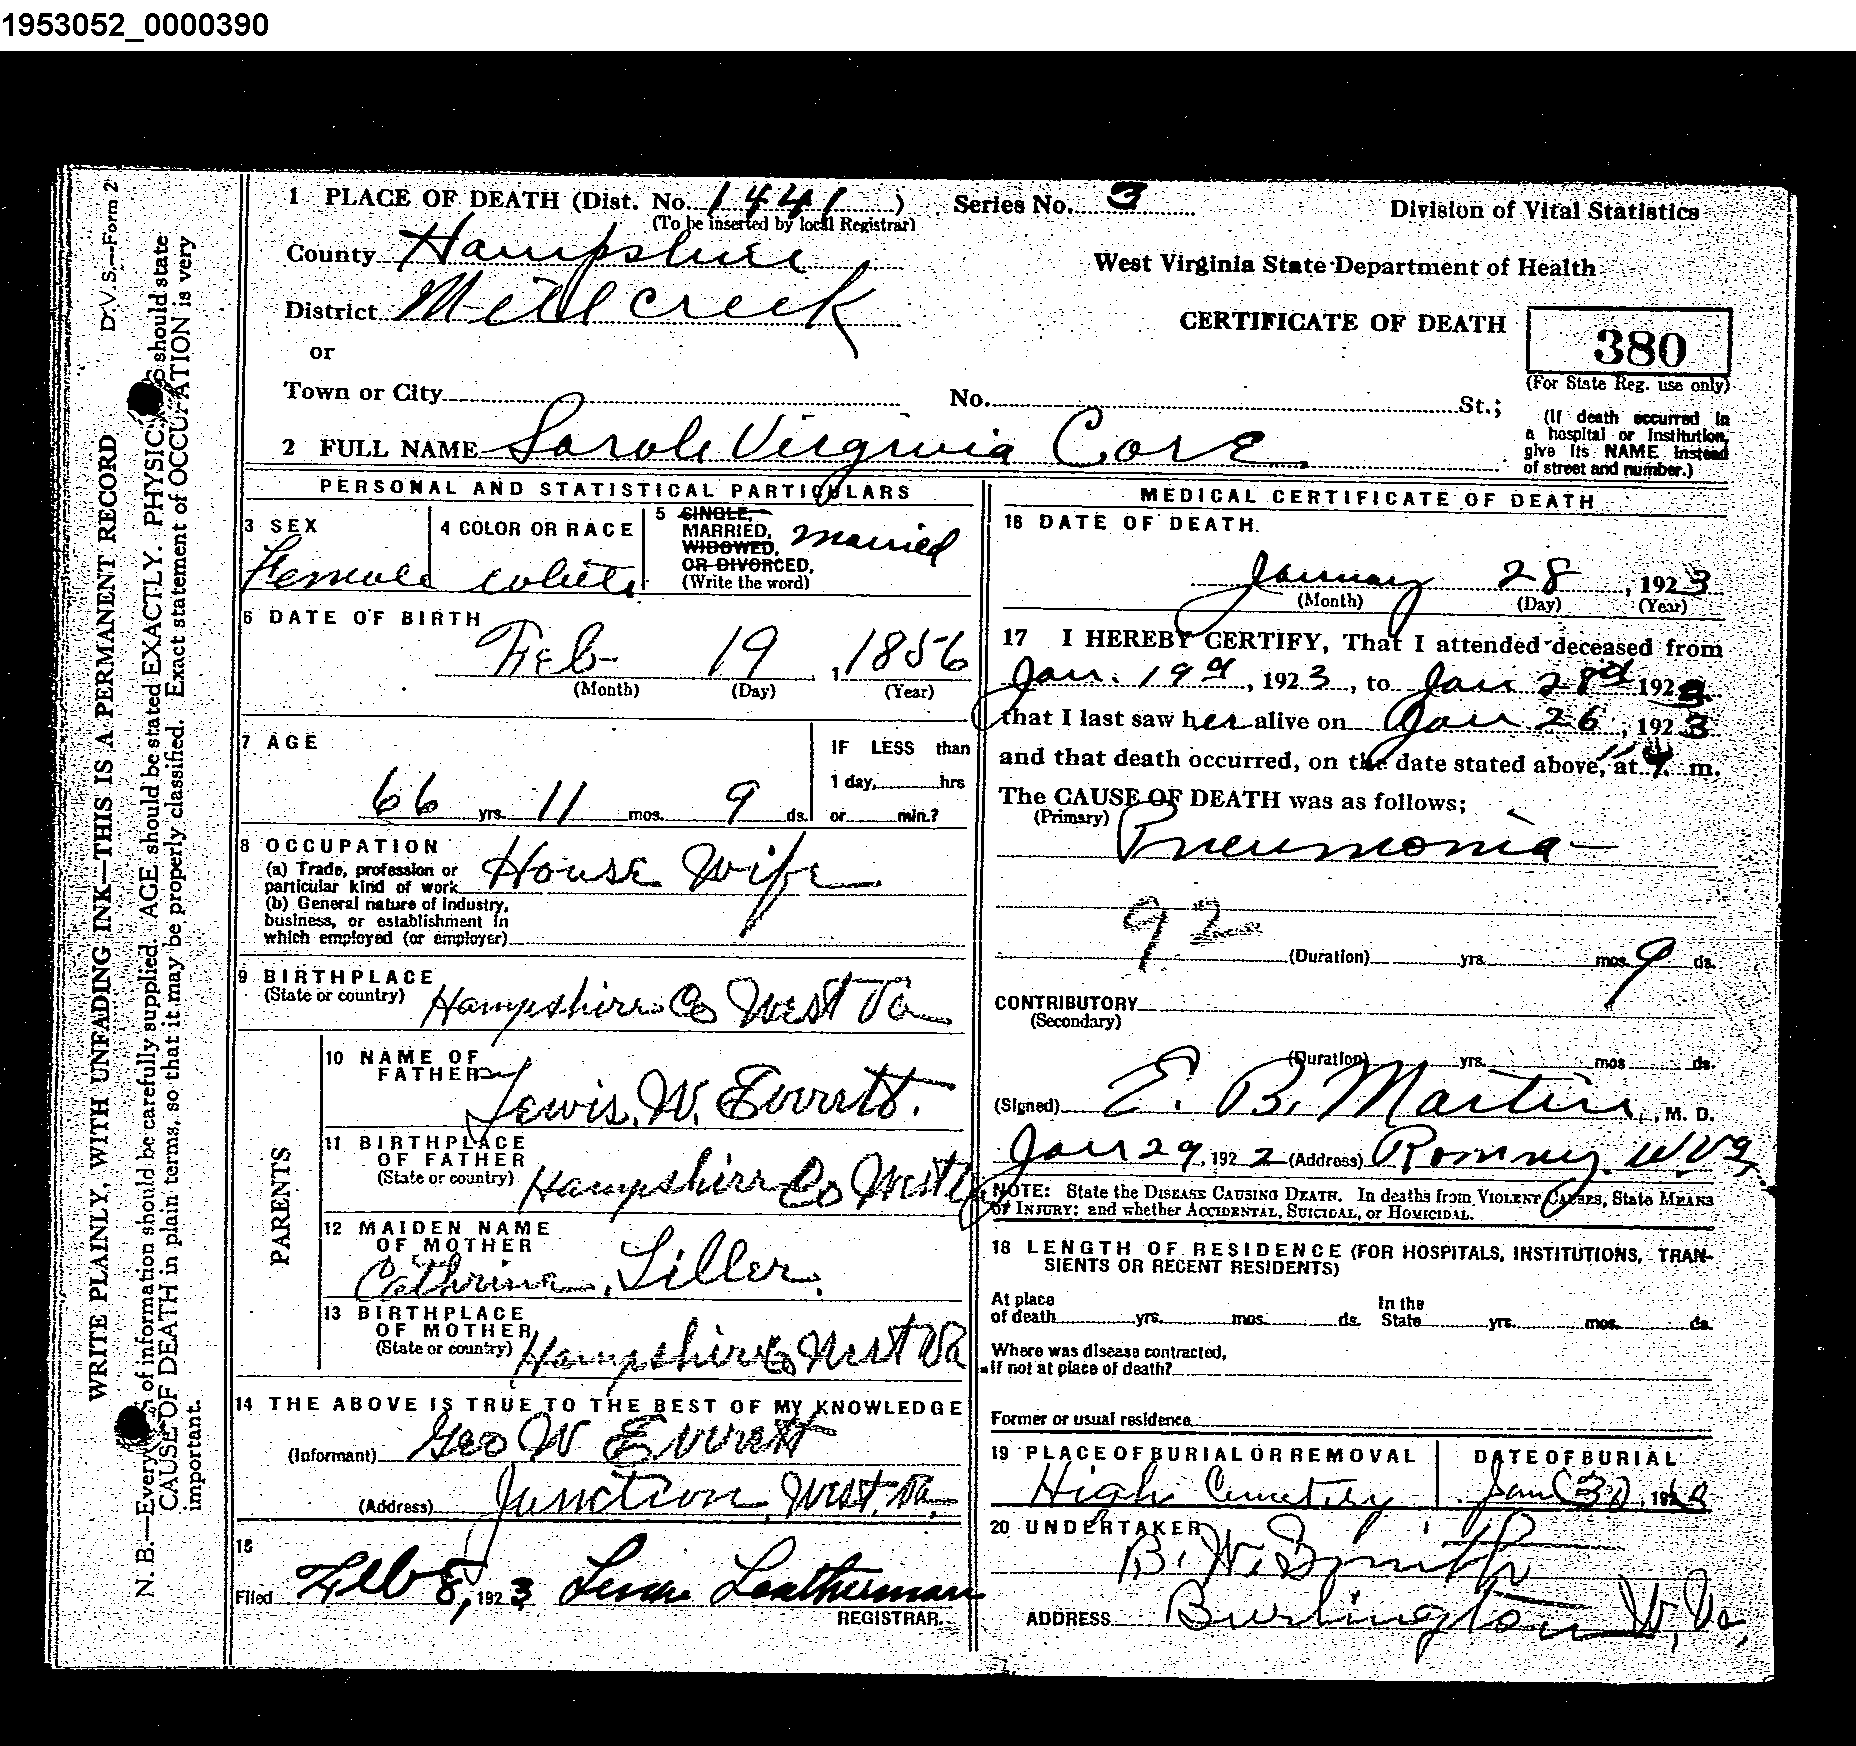 1953052_0000390
D.V.S.—Form 2
WRITE PLAINLY, WITH UNFADING INK—THIS IS A PERMANENT RECORD
N. B.—Every of information should be carefully supplied. AGE should be stated EXACTLY. PHYSIC should state
CAUSE OF DEATH in plain terms, so that it may be properly classified. Exact statement of OCCUPATION is very
important.
1 PLACE OF DEATH (Dist. No. 1441) Series No. 3
(To be inserted by local Registrar)
Division of Vital Statistics
County Hampshire
West Virginia State Department of Health
District Mill creek
CERTIFICATE OF DEATH
380
(For State Reg. use only)
or
Town or City No. St.;
(If death occurred in
a hospital or Institution,
give its NAME instead
of street and number.)
2 FULL NAME Sarah Virginia Core
PERSONAL AND STATISTICAL PARTICULARS
3 SEX
Female
4 COLOR OR RACE
white
5 SINGLE,
MARRIED,
WIDOWED,
OR DIVORCED,
(Write the word)
married
6 DATE OF BIRTH
Feb 19, 1856
(Month) (Day) (Year)
7 AGE
66 yrs. 11 mos. 9 ds.
IF LESS than
1 day, hrs
or min.?
8 OCCUPATION
(a) Trade, profession or
particular kind of work House Wife
(b) General nature of industry,
business, or establishment in
which employed (or employer)
9 BIRTHPLACE
(State or country) Hampshire Co West Va
PARENTS
10 NAME OF
FATHER
Lewis. W. Everett.
11 BIRTHPLACE
OF FATHER
(State or country) Hampshire Co West Va
12 MAIDEN NAME
OF MOTHER
Cathrina. Liller.
13 BIRTHPLACE
OF MOTHER
(State or country) Hampshire Co West Va
14 THE ABOVE IS TRUE TO THE BEST OF MY KNOWLEDGE
(Informant) Geo W Everett
(Address) Junction, West. Va.
15
Filed Feb 8, 1923 Leatherman
REGISTRAR.
MEDICAL CERTIFICATE OF DEATH
16 DATE OF DEATH.
January 28, 1923
(Month) (Day) (Year)
17 I HEREBY CERTIFY, That I attended deceased from
Jan. 19th, 1923, to Jan 28th 1923.
that I last saw her alive on Jan 26, 1923
and that death occurred, on the date stated above, at m.
The CAUSE OF DEATH was as follows;
(Primary) Pneumonia
92
(Duration) yrs. mos. 9 ds.
CONTRIBUTORY
(Secondary)
(Duration) yrs. mos ds.
(Signed) E. B. Martin, M. D.
Jan 29, 1922 (Address) Romney W Va
NOTE: State the DISEASE CAUSING DEATH. In deaths from VIOLENT CAUSES, State MEANS
OF INJURY; and whether ACCIDENTAL, SUICIDAL, or HOMICIDAL.
18 LENGTH OF RESIDENCE (FOR HOSPITALS, INSTITUTIONS, TRAN-
SIENTS OR RECENT RESIDENTS)
At place
of death yrs. mos. ds.
In the
State yrs. mos. ds.
Where was disease contracted,
if not at place of death?
Former or usual residence
19 PLACE OF BURIAL OR REMOVAL
High Cemetery
DATE OF BURIAL
Jan 30, 1923
20 UNDERTAKER
B. W. Smith
ADDRESS Burlington W. Va,